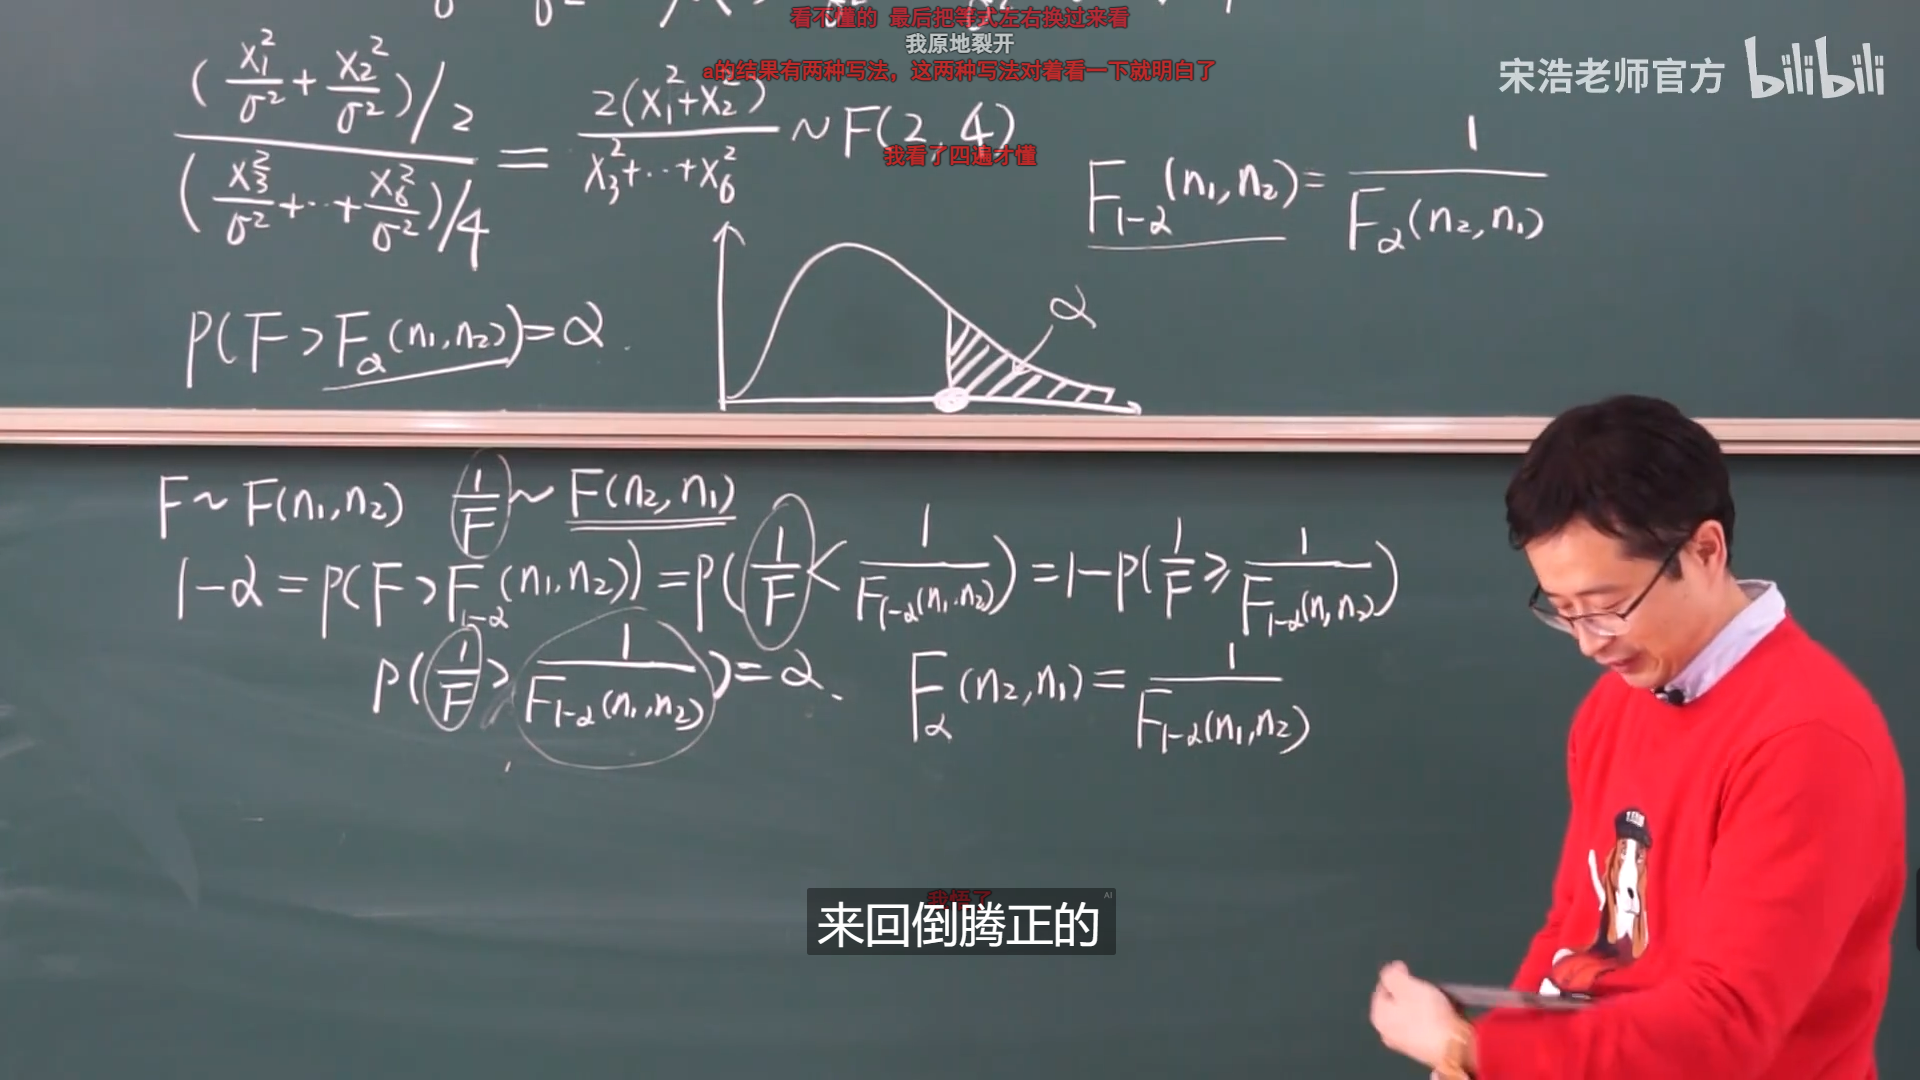 看不懂的 最后把等式左右换过来看
我原地裂开
a的结果有两种写法，这两种写法对着看一下就明白了
宋浩老师官方 bilibili
(X₁²/σ² + X₂²/σ²)/2 / (X₃²/σ² + ‥ + X₆²/σ²)/4 = 2(X₁²+X₂²) / X₃²+‥+X₆² ~ F(2, 4)
我看了四遍才懂
F₁₋α(n₁,n₂) = 1 / Fα(n₂,n₁)
P(F > Fα(n₁,n₂)) = α.
α
F ~ F(n₁,n₂) 1/F ~ F(n₂,n₁)
1-α = P(F > F₁₋α(n₁,n₂)) = P(1/F < 1/F₁₋α(n₁,n₂)) = 1-P(1/F ≥ 1/F₁₋α(n₁,n₂))
P(1/F > 1/F₁₋α(n₁,n₂)) = α. Fα(n₂,n₁) = 1/F₁₋α(n₁,n₂)
我悟了
AI
来回倒腾正的